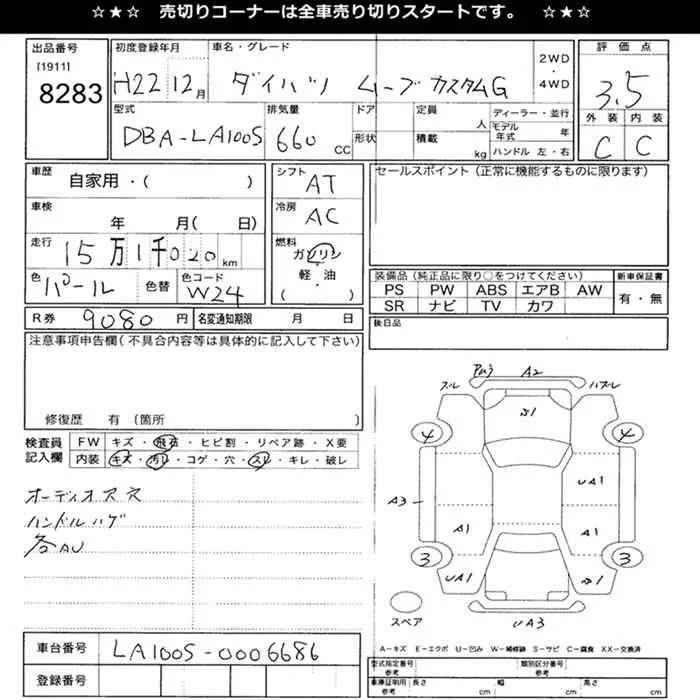 ☆★☆ 売切りコーナーは全車売り切りスタートです。 ☆★☆
出品番号 初度登録年月 車名・グレード 2WD・4WD 評価点
[1911]
8283 H22 12月 ダイハツ ムーブカスタムG 3.5
型式 排気量 ドア 定員 人 ディーラー・並行
外装 内装
DBA-LA100S 660 CC 形状 積載 kg モデル年式 年
ハンドル 左・右
C C
車歴 自家用・( )
シフト AT
セールスポイント(正常に機能するものに限ります)
車検 年 月( 日)
冷房 AC
走行 15万1千020km
燃料 ガソリン・軽・油 ( )
色 パール 色替 色コード W24
装備品(純正品に限り○をつけてください) 新車保証書
PS PW ABS エアB AW 有・無
SR ナビ TV カワ
R券 9080円 名変通知期限 月 日
後日品
注意事項申告欄(不具合内容等は具体的に記入して下さい)
修復歴 有(箇所 )
検査員記入欄
FW キズ・飛石・ヒビ割・リペア跡・X要
内装 キズ・汚れ・コゲ・穴・スレ・キレ・破レ
オーディオ
ハンドルハゲ
各AU
A2
4 4
UA1
A3
A1 A1
3 3
UA1
スペア
UA3
A-キズ E-エクボ U-凹み W-補修跡 S-サビ C-腐食 XX-交換済
車台番号 LA100S-0006686
登録番号
型式指定番号 参考 類別区分番号 参考
車庫証明用 参考 長さ cm 幅 cm 高さ cm